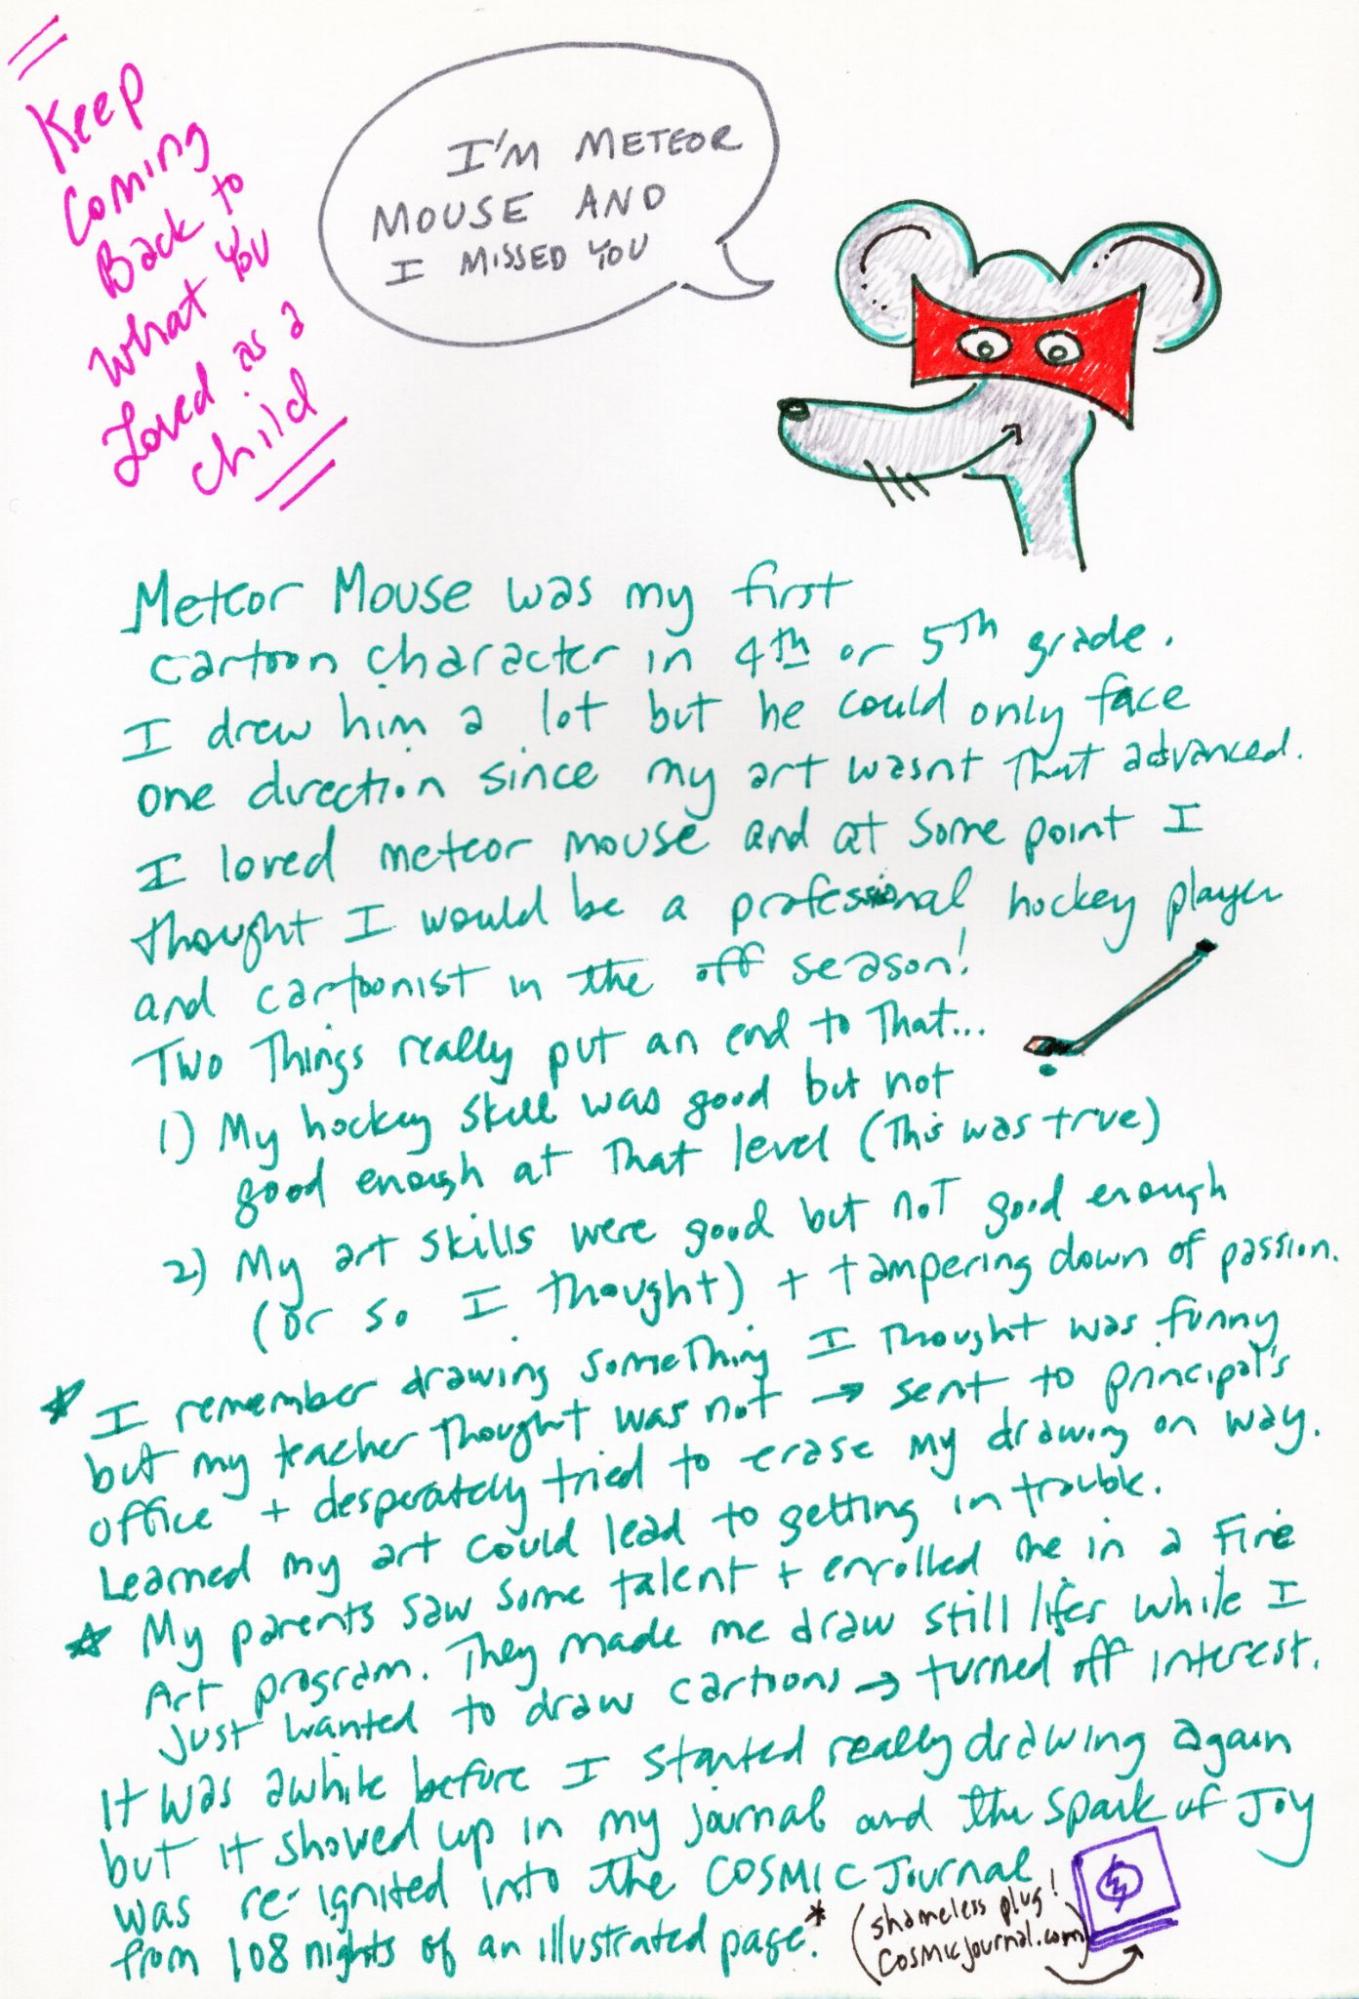 Keep
Coming
Back to
What You
Loved as a
child
I'M METEOR
MOUSE AND
I MISSED YOU
Meteor Mouse was my first
cartoon character in 4th or 5th grade.
I drew him a lot but he could only face
one direction since my art wasnt that advanced.
I loved meteor mouse and at some point I
thought I would be a professional hockey player
and cartoonist in the off season!
Two Things really put an end to That...
1) My hockey skill was good but not
good enough at That level (This was true)
2) My art skills were good but not good enough
(or so I thought) + tampering down of passion.
* I remember drawing something I thought was funny
but my teacher thought was not → sent to principal's
office + desperately tried to erase my drawing on way.
Learned my art could lead to getting in trouble.
* My parents saw some talent + enrolled me in a Fine
Art program. They made me draw still lifes while I
Just wanted to draw cartoons → turned off interest.
It was awhile before I started really drawing again
but it showed up in my journal and the spark of Joy
was re-ignited into the COSMIC Journal
from 108 nights of an illustrated page.*
(shameless plug!
COSMICjournal.com)